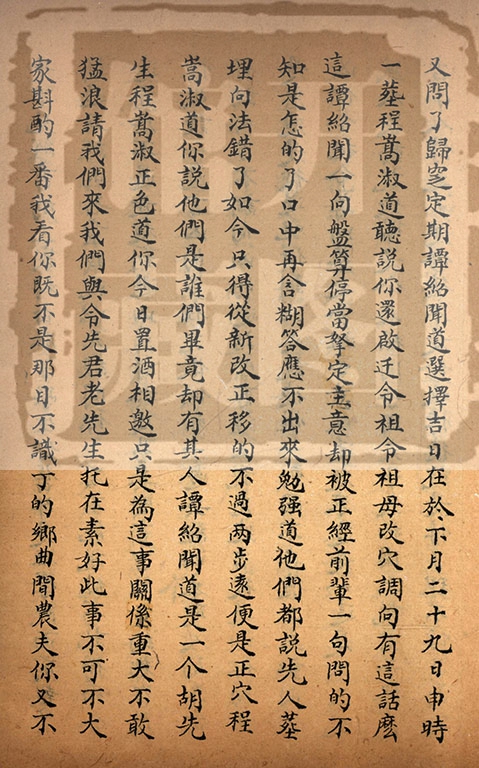 又問了歸窆定期譚紹聞道選擇吉日在於下月二十九日申時
一塟程嵩淑道聽說你還啟迁令祖令祖母改穴調向有這話麽
這譚紹聞一向盤算停當拏定主意却被正經前輩一句問的不
知是怎的了口中再含糊答應不出來勉强道他們都說先人塟
埋向法錯了如今只得從新改正移的不過两步遠便是正穴程
嵩淑道你說他們是誰們畢竟却有其人譚紹聞道是一个胡先
生程嵩淑正色道你今日置酒相邀只是為這事關係重大不敢
猛浪請我們來我們與令先君老先生托在素好此事不可不大
家斟酌一番我看你既不是那目不識丁的鄉曲間農夫你又不